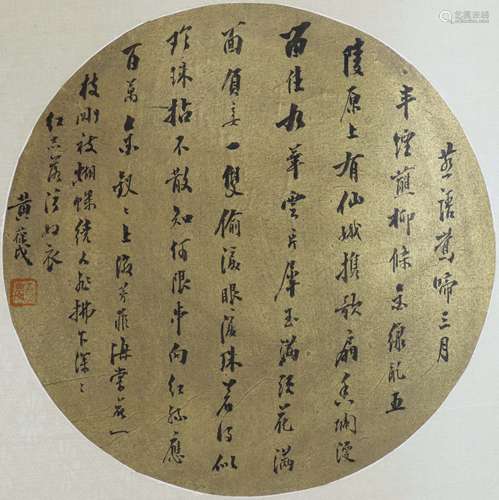 燕語鶯啼三月
半煙蘸柳條金線亂五
陵原上有仙娥攜歌扇香爛漫
留住九華雲一片犀玉滿頭花滿
面負妾一雙偷淚眼淚珠若得似
珍珠拈不散知何限串向紅絲應
百萬金釵〻上綴芳菲海棠花一
枝剛被蝴蝶繞人飛拂下深〻
紅蕊落污奴衣
黃葆戊